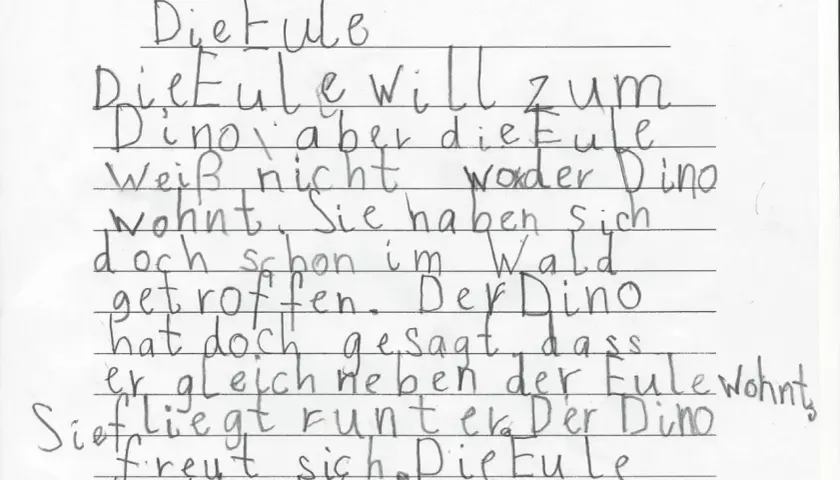 Die Eule
Die Eule will zum
Dino, aber die Eule
weiß nicht wo der Dino
wohnt. Sie haben sich
doch schon im Wald
getroffen. Der Dino
hat doch gesagt, dass
er gleich neben der Eule wohnt.
Sie fliegt runter. Der Dino
freut sich. Die Eule